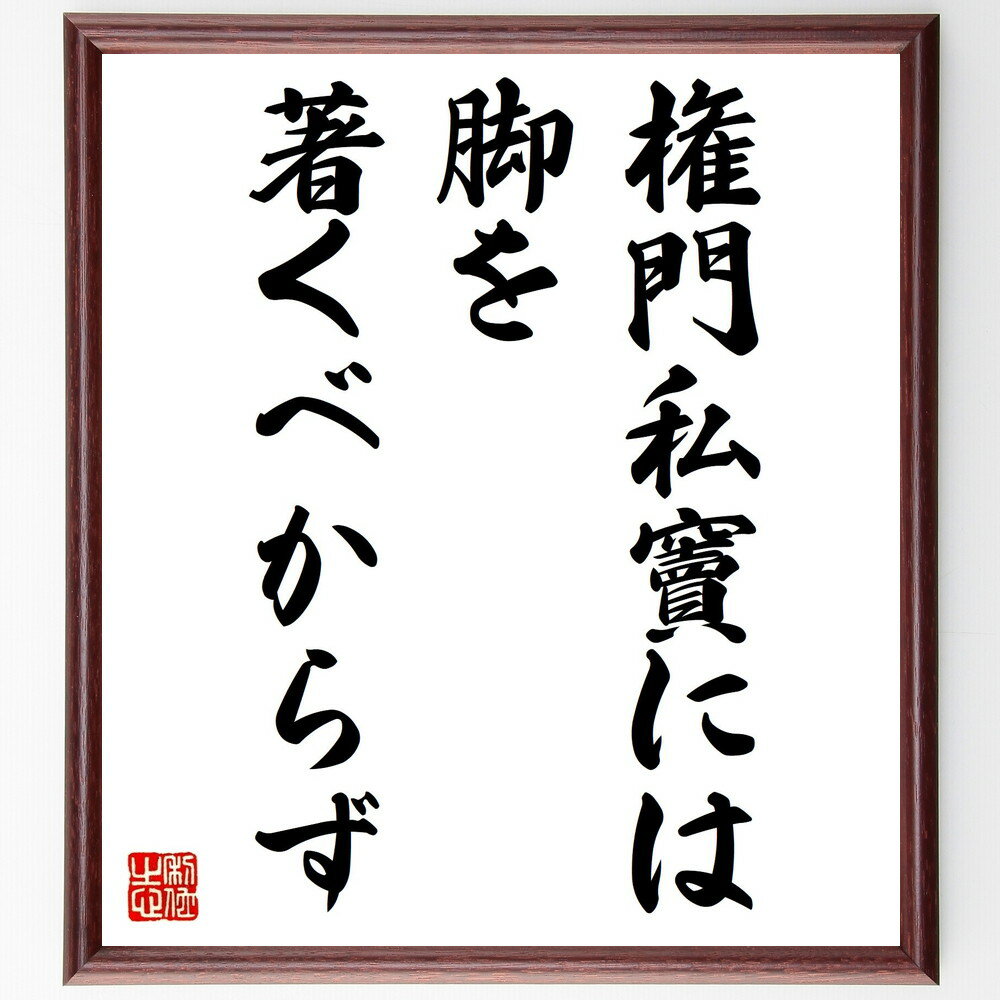 権門私竇には
脚を
著くべからず